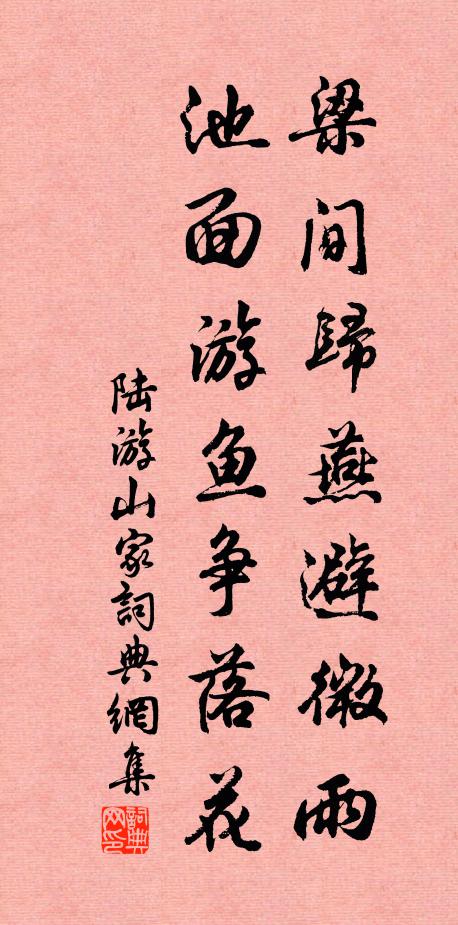 梁间歸燕避微雨
池面游鱼争落花
陆游山家詞典網集
詞典网印